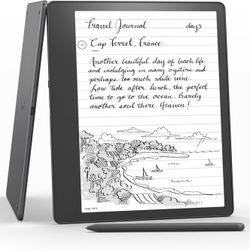 Travel Journal day 3
Cap Ferret, France
Another beautiful day of beach life
and indulging in many oysters and
perhaps too much white wine.
Low tide after lunch, the perfect
time to go to the ocean. Barely
another soul there. Heaven!